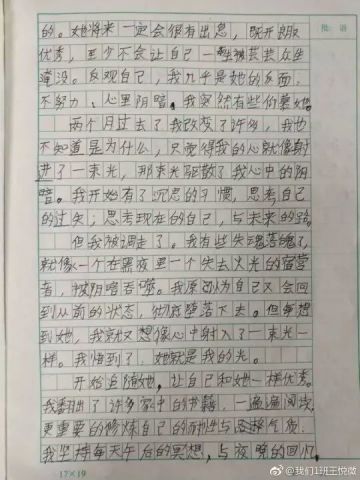 批 语
的。她将来一定会很有出息，既开朗又
优秀，至少不会让自己一生被芸芸众生
淹没。反观自己，我几乎是她的反面，
不努力、心里阴暗。我突然有些仰慕她。
两个月过去了我改变了许多，我也
不知道是为什么，只觉得我的心就像射
进了一束光，那束光驱散了我心中的阴
暗。我开始有了沉思的习惯，思考自己
的过失；思考现在的自己，与未来的路。
但我被调走了。我有些失魂落魄了，
就像一个在黑夜里一个失去火光的宿营
者，被阴暗吞噬。我原以为自己又会回
到从前的状态，彻底堕落下去。但每想
到她，我就又想像心中射入了一束光一
样。我悟到了，她就是我的光。
开始追随她，让自己和她一样优秀。
我翻出了许多家中的书籍，一遍遍阅读，
更重要的修炼自己的耐性与气质，
我坚持每天午后的冥想，与夜晚的回忆，
17×19
@我们1班王悦微